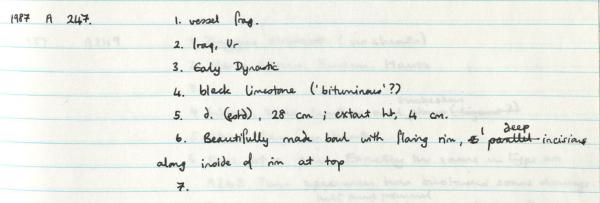 1987 A 247. 1. vessel frag.
2. Iraq, Ur
3. Ealy Dynastic
4. black limestone ('bituminous'?)
5. d. (estd), 28 cm ; extant ht, 4 cm.
6. Beautifully made bowl with flaring rim, 1 deep incision
along inside of rim at top
7.